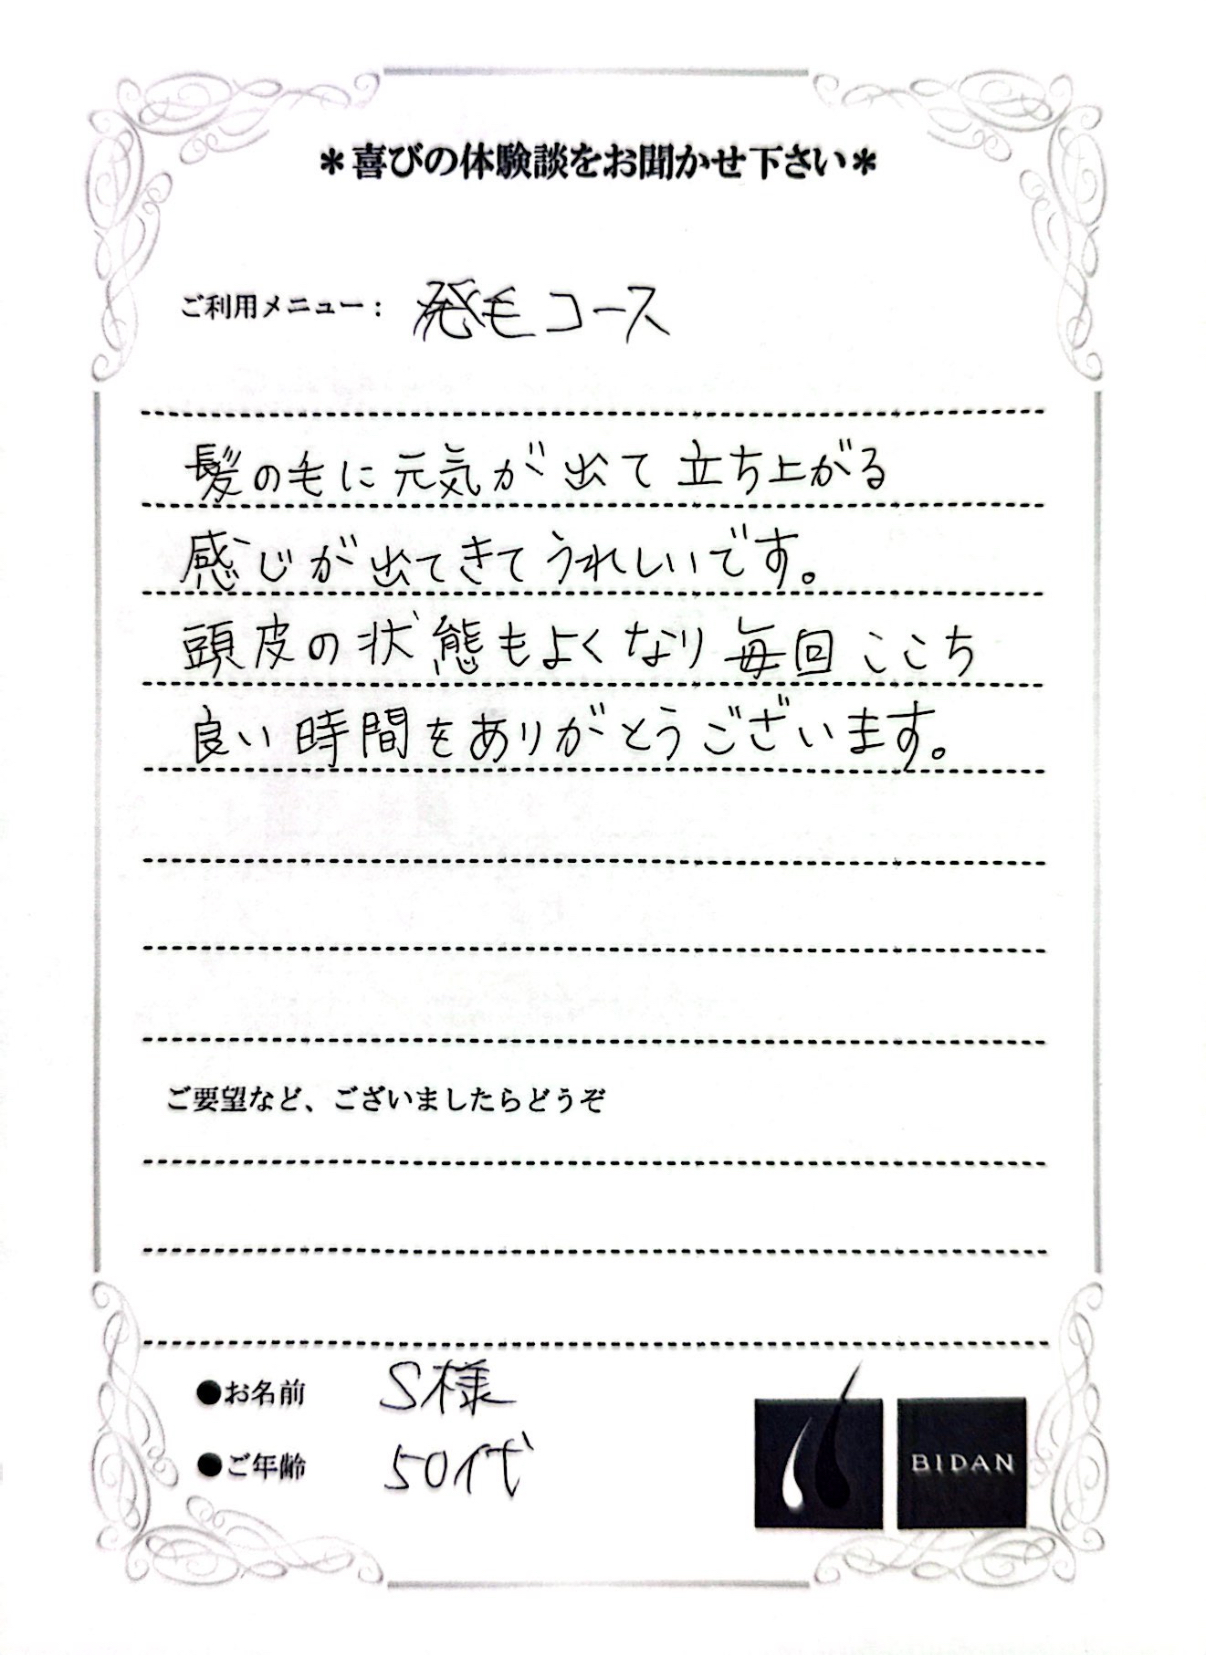 ＊喜びの体験談をお聞かせ下さい＊
ご利用メニュー： 発毛コース
髪の毛に元気が出て立ち上がる
感じが出てきてうれしいです。
頭皮の状態もよくなり毎回ここち
良い時間をありがとうございます。
ご要望など、ございましたらどうぞ
●お名前 S様
●ご年齢 50代
BIDAN